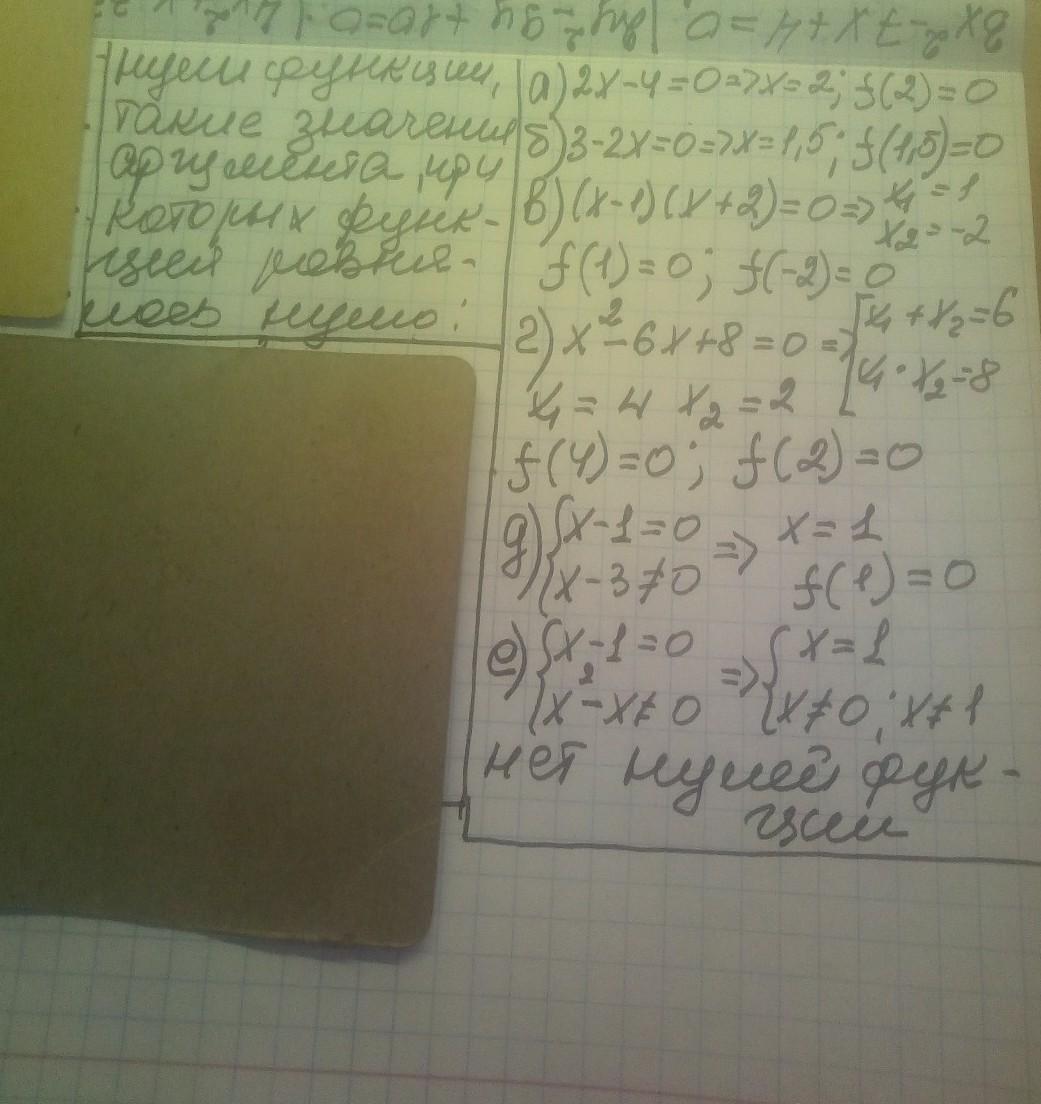 нули функции,
такие значения
аргумента, при
которых функ-
ция равня-
лось нулю:
а) 2x-4=0=>x=2; f(2)=0
б) 3-2x=0=>x=1,5; f(1,5)=0
в) (x-1)(x+2)=0=> x₁=1
x₂=-2
f(1)=0; f(-2)=0
г) x²-6x+8=0=> [x₁+x₂=6
x₁·x₂=8
x₁=4 x₂=2
f(4)=0; f(2)=0
д) {x-1=0 => x=1
x-3≠0 f(1)=0
е) {x-1=0 => {x=1
x²-x≠0 x≠0; x≠1
нет нулей фун-
ции